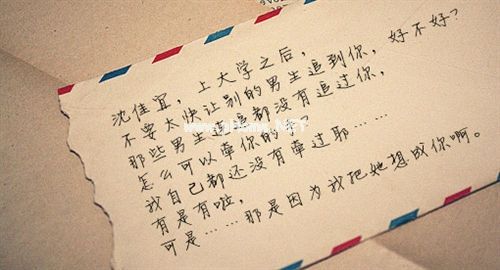 沈佳宜，上大学之后，
不要太快让别的男生追到你，好不好？
那些男生连追都没有追过你，
怎么可以牵你的手
我自己都还没有牵过耶……
有是有啦，
可是……那是因为我把她想成你啊。